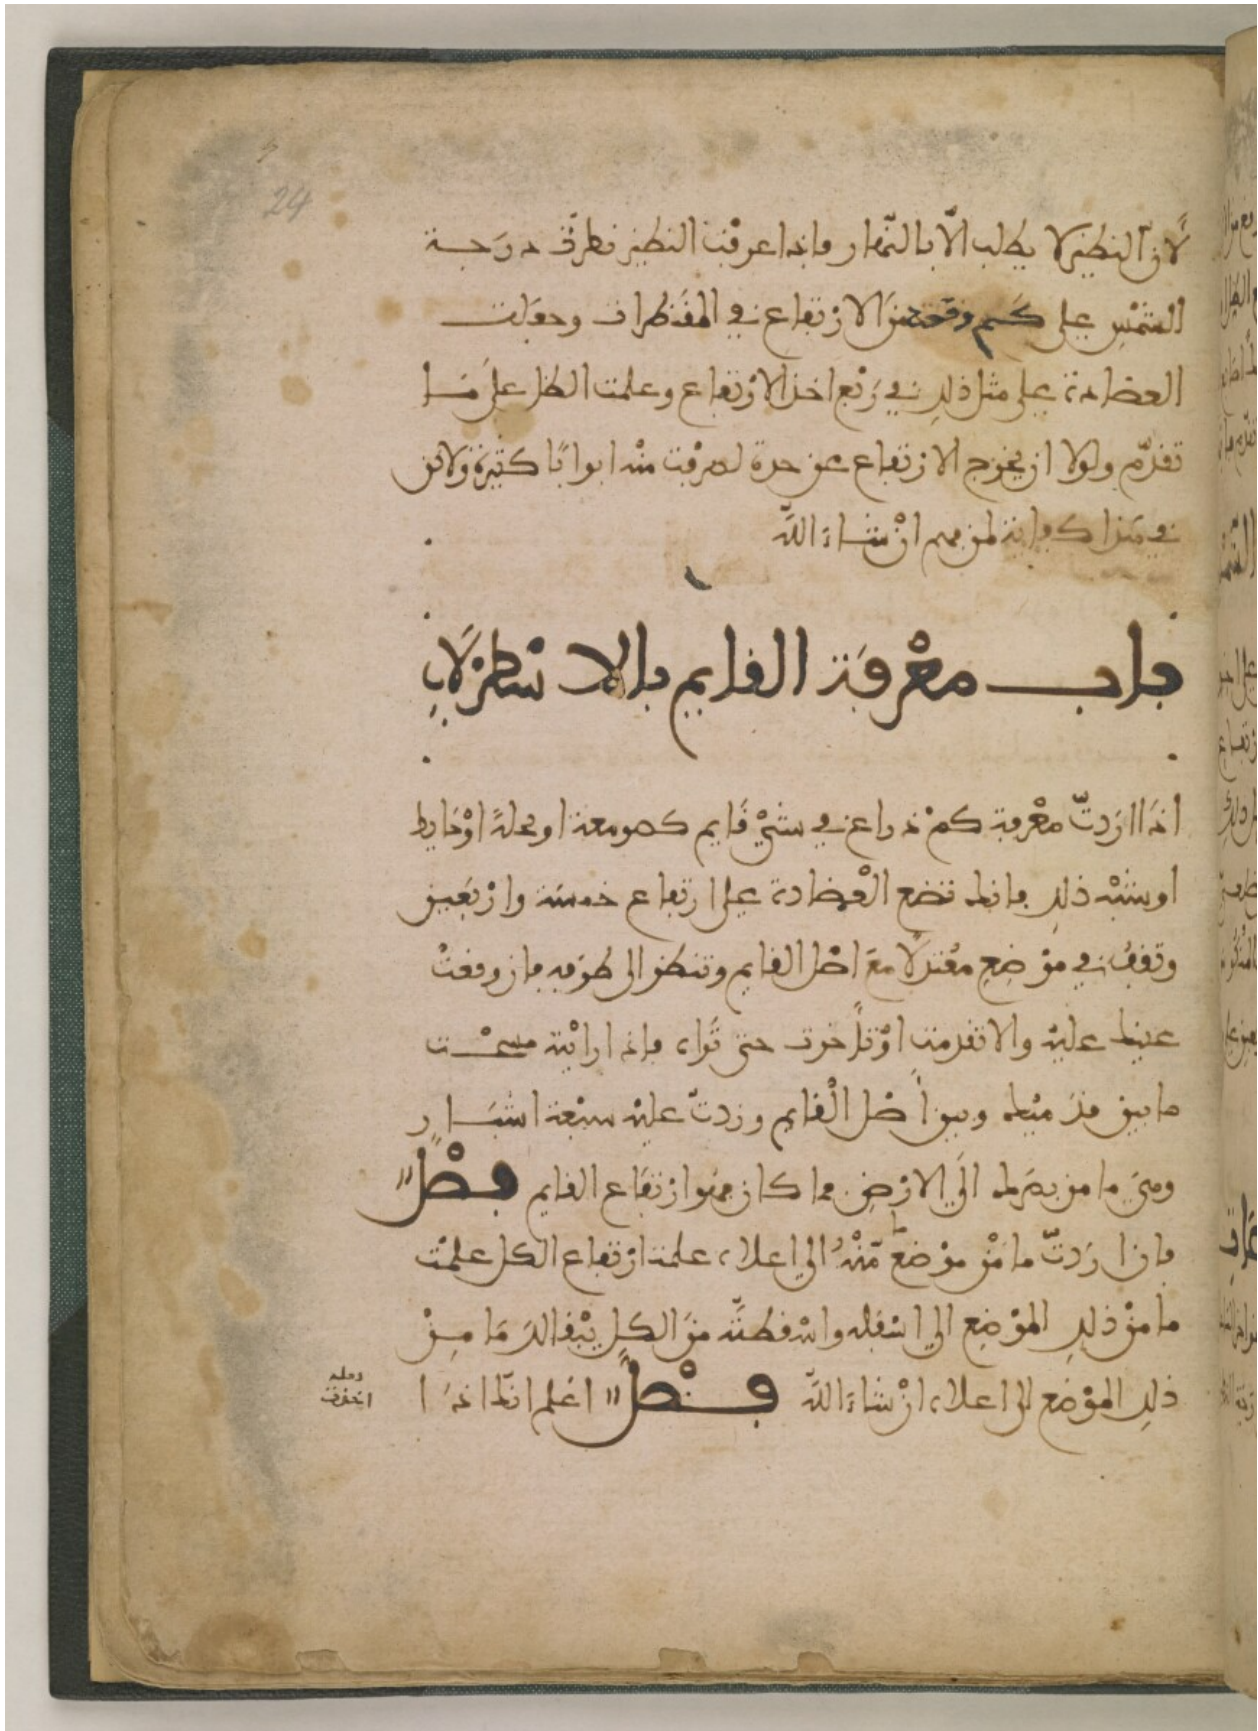 24
لأنّ النظير لا يطلب الاّ بالنّهار فاذا عرفت النظير نظرتَ درَجـة
الشمْسِ على كَـم وقعت منَ الارْتفاع في المقَنطرات وجعَلت
العضادة على مثل ذلك في رَبْع اخذ الارْتفاع وعلمت الظل علَى مَـا
تقدّم ولولا ان يخرج الارتفاع عن حده لصرفت منْه ابوابًا كثيرة ولاكن
في هَذا كفاية لمن فهم انْ شاءَ اللّه
بـاب معْرفَة القايم بالاسْطرْلاَبِ
اذَا ارَدتّ معْرفة كمْ ذراع في شيْ قَايم كصومعة او نخلةً اوْ حَايط
او شبْه ذلك فانك تضع الْعضادة على ارتفاع خمسَة وارْبَعين
وتقفُ في موْضعٍ معْتدلاً معَ اصْل القايم وتنظر الى طرَفه فان وقعتْ
عينك عليْه والا تقدمت اوْ تأخرت حتى تَراه فاذا رايْته مسحْـت
ما بين قدَميْك وبين أصْل الْقايم وزدتّ عليْه سبْعة اشبَـار
وهيَ ما من بصَرك الَى الارْض فما كان فهو ارْتفَاع القايم فـصْلٌ
فان ارَدتّ ما منْ موْضع مّنْهُ الى اعلاه علمت ارْتفاع الكل علمْت
ما منْ ذلك الموْضع الى اسْفله واسْقطتَّه منَ الكل يبْقا لكَ مَا مـنْ
ذلك الموْضع الى اعلاه انْ شاءَ اللّه فـصْلٌ اعْلم انّك اذَا